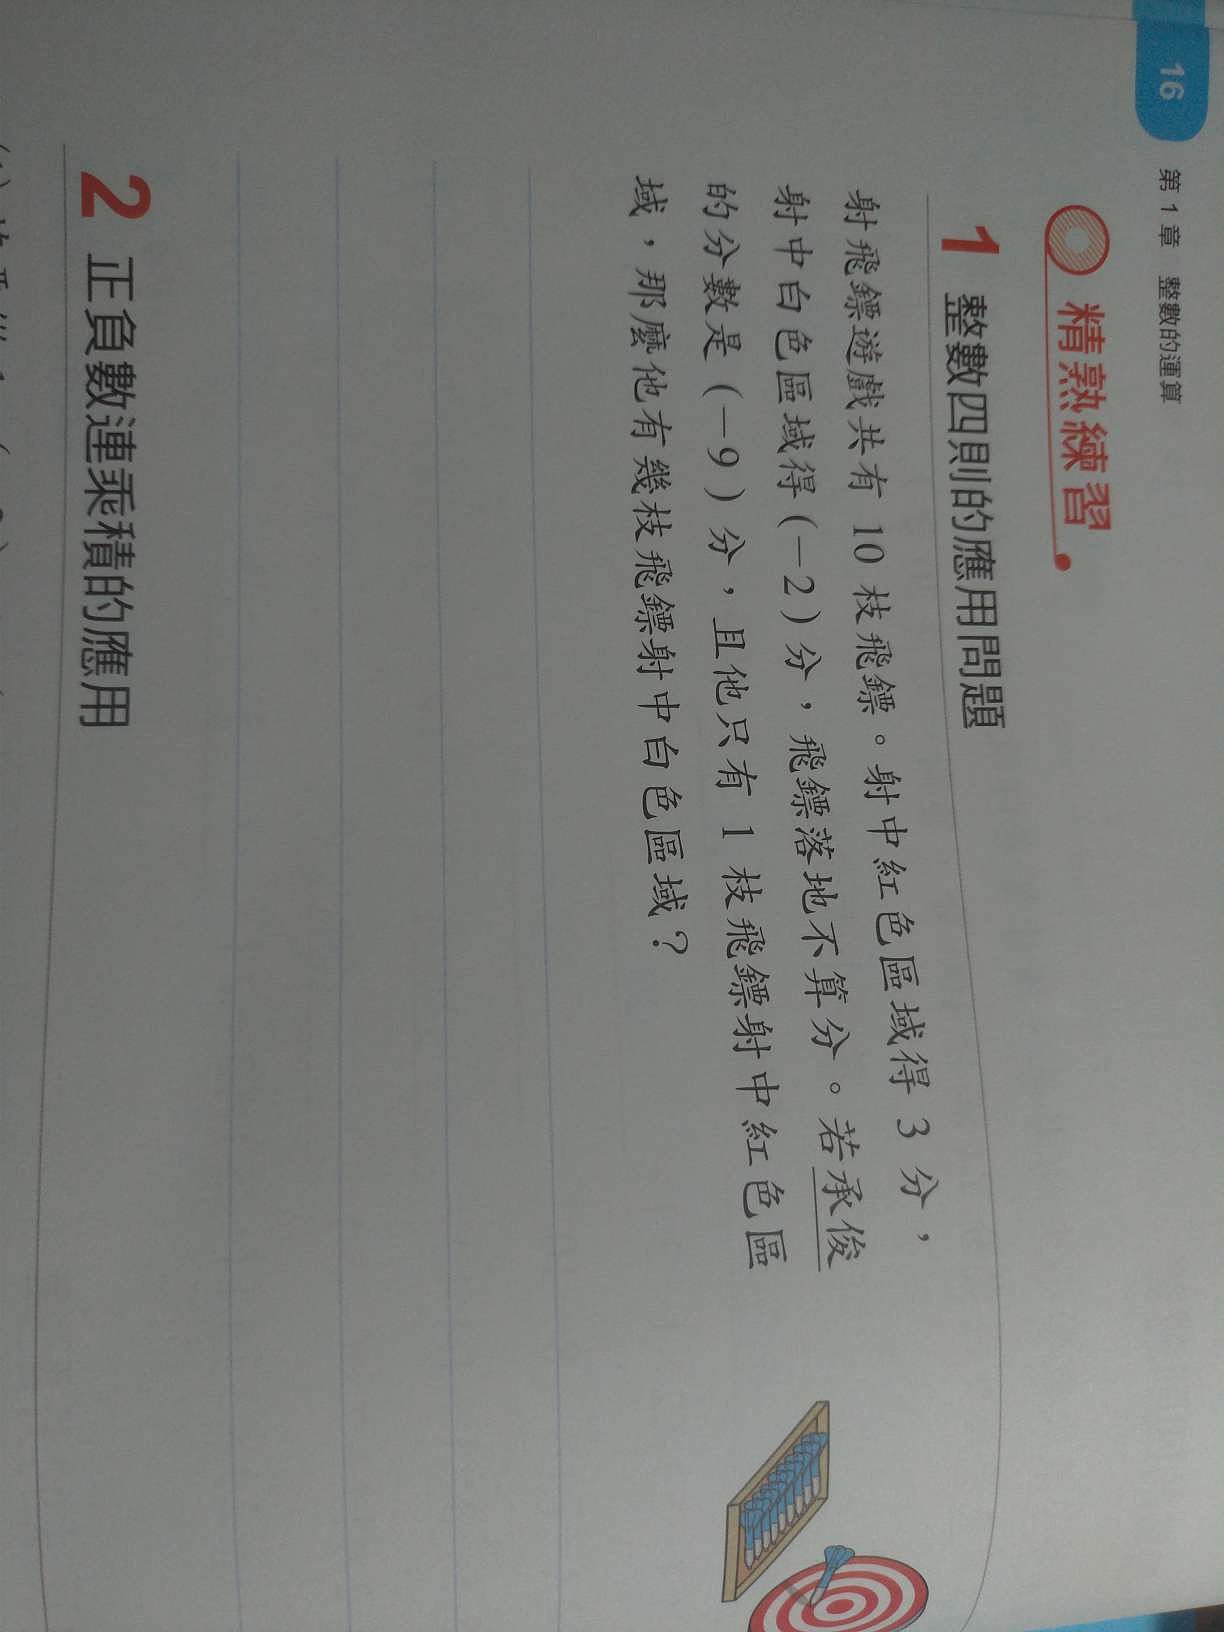 16
第 1 章 整數的運算
精熟練習
1 整數四則的應用問題
射飛鏢遊戲共有 10 枝飛鏢。射中紅色區域得 3 分，
射中白色區域得 (－2) 分，飛鏢落地不算分。若承俊
的分數是 (－9) 分，且他只有 1 枝飛鏢射中紅色區
域，那麼他有幾枝飛鏢射中白色區域？
2 正負數連乘積的應用